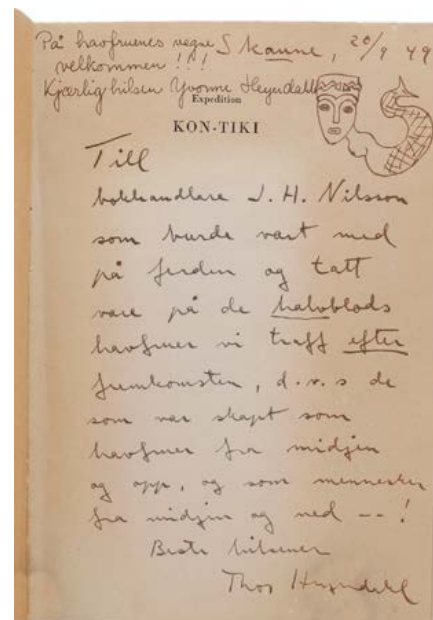 På havfruenes vegne Skanne, 20/9 49
velkommen !!!
Kjærlig hilsen Yvonne Heyerdahl
Expedition
KON-TIKI
Till
bokhandlare J. H. Nilsson
som burde vært med
på ferden og tatt
vare på de halvblods
havfruer vi traff efter
fremkomsten, d.v.s de
som var skapt som
havfruer fra midjen
og opp, og som mennesker
fra midjen og ned --!
Beste hilsener
Thor Heyerdahl